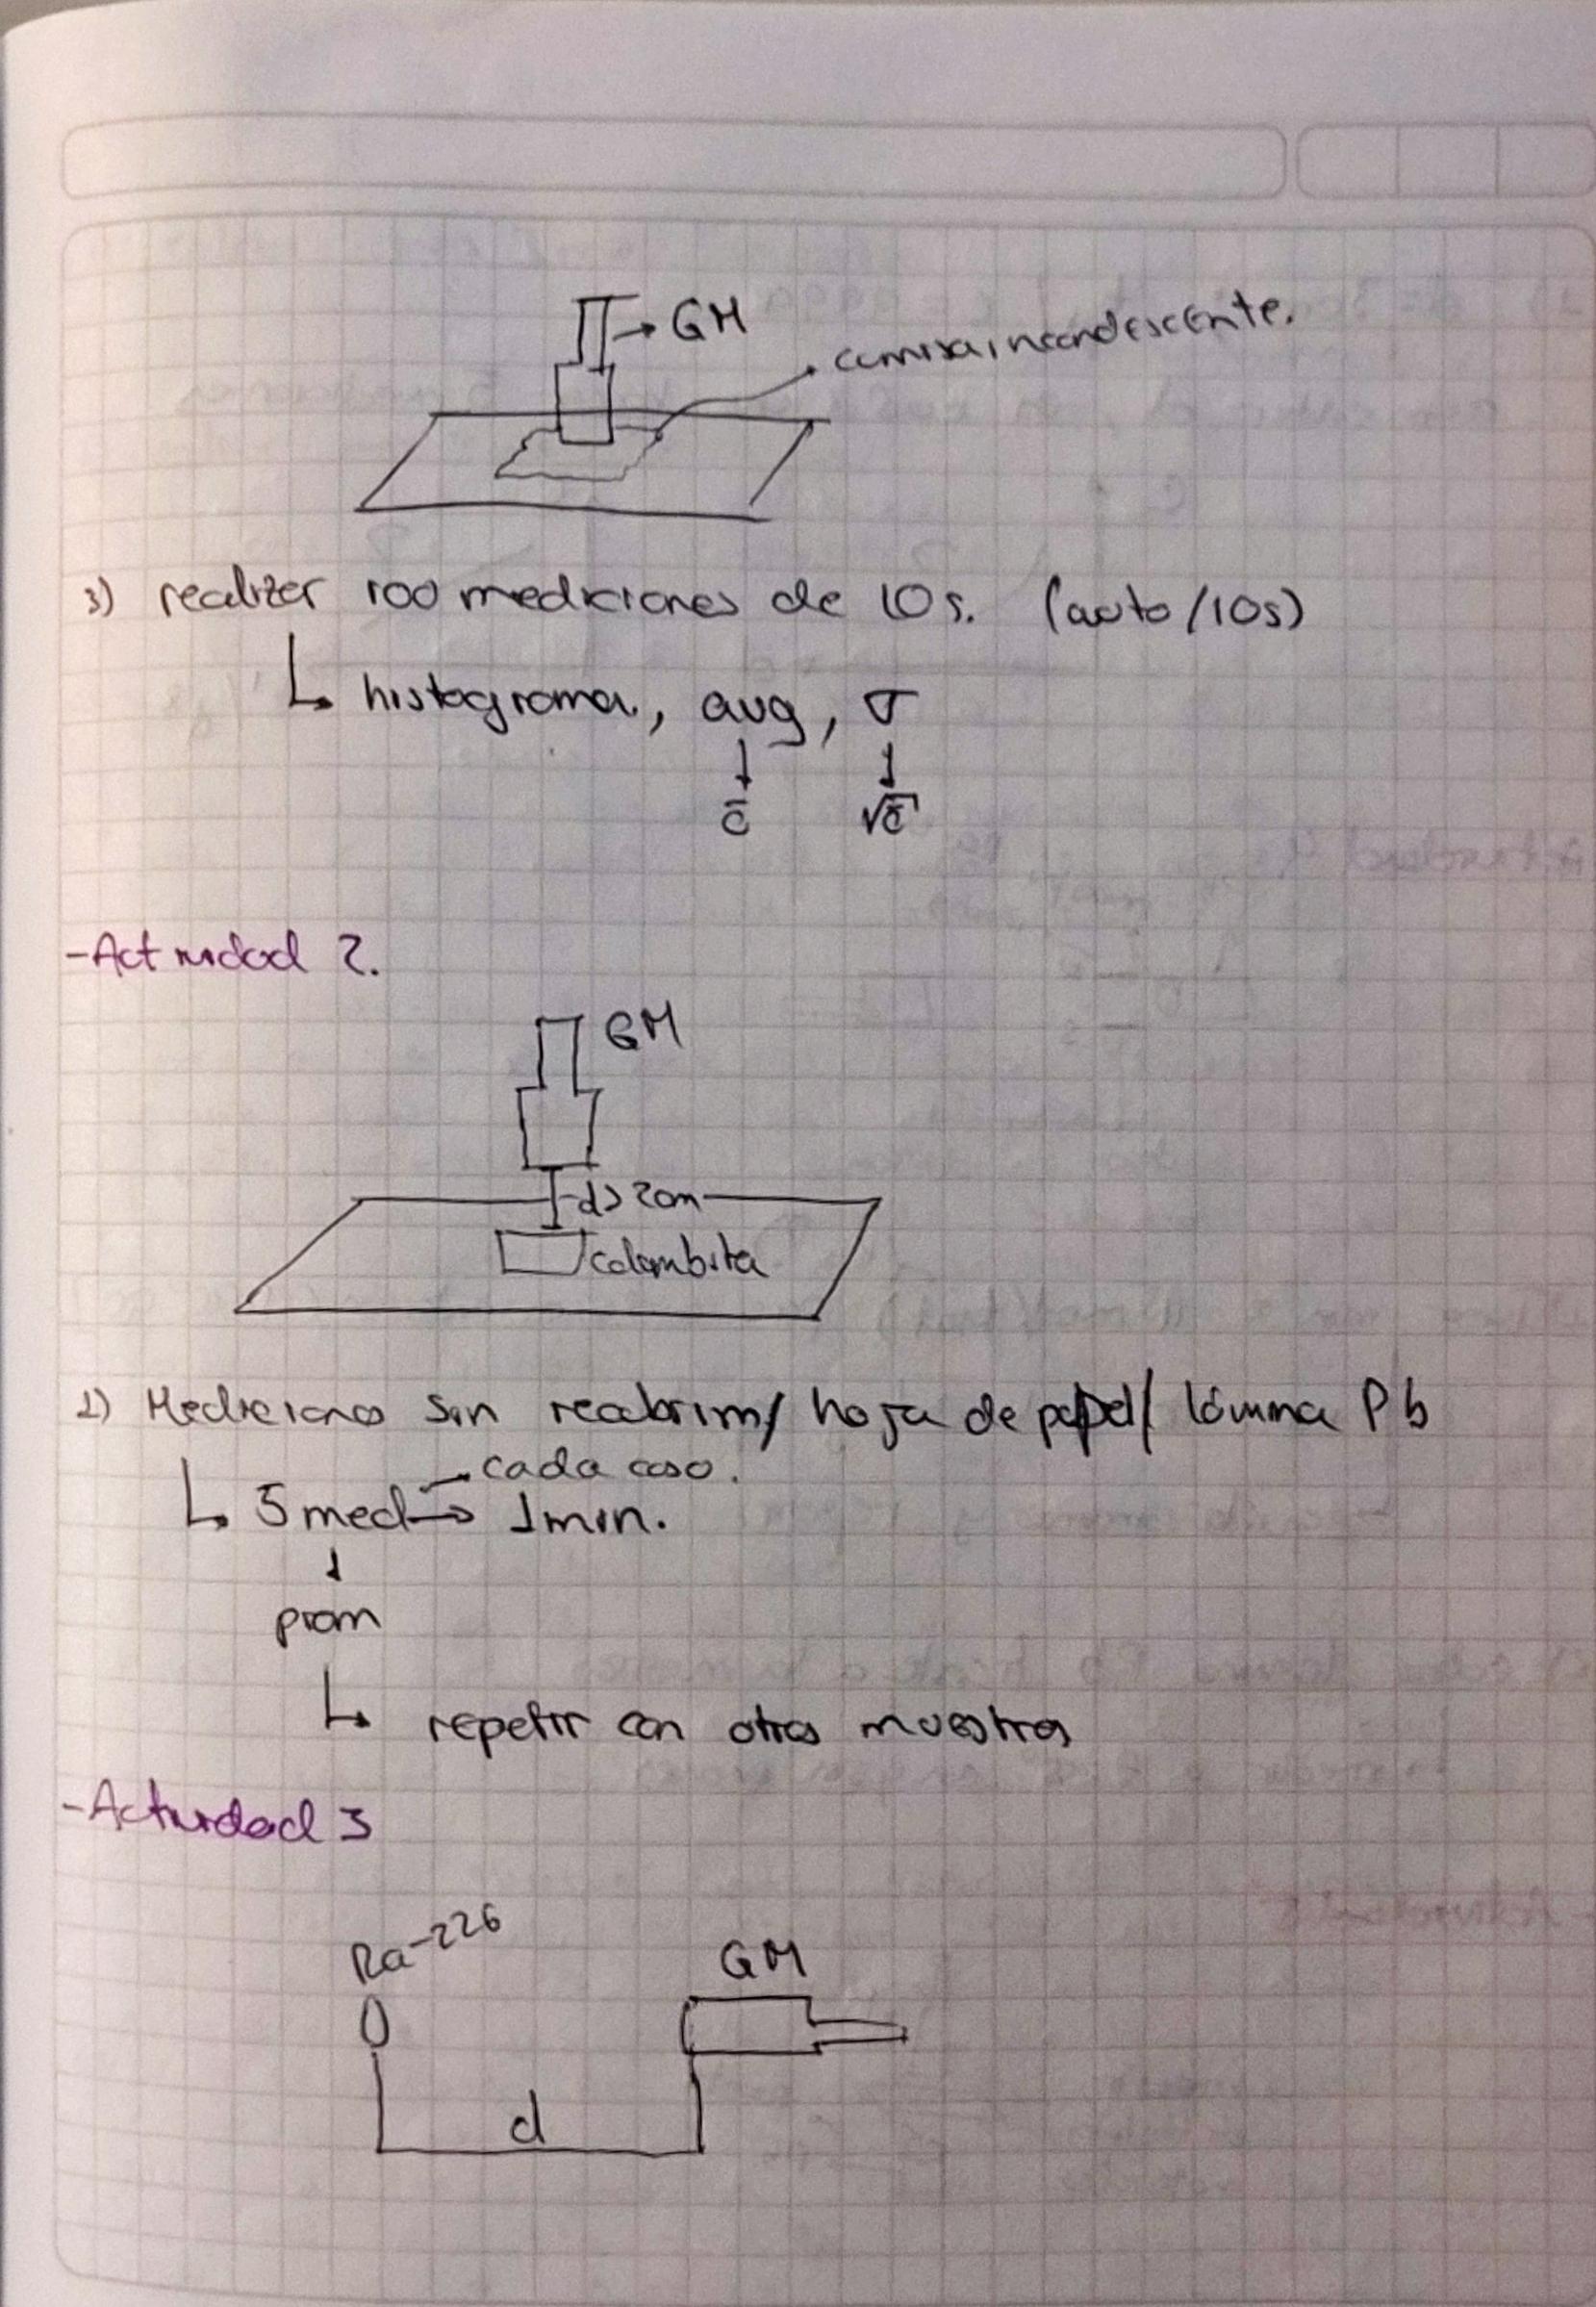 GM
camisa incandescente.
3) realizar 100 mediciones de 10s. (auto/10s)
histograma, avg, σ
c̄ √c̄
-Actividad 2.
GM
d>2cm
colombita
1) Mediciones sin recubrim/ hoja de papel/ lámina Pb
cada caso.
5 med → 1min.
prom
repetir con otras muestras
-Actividad 3
Ra-226
GM
d